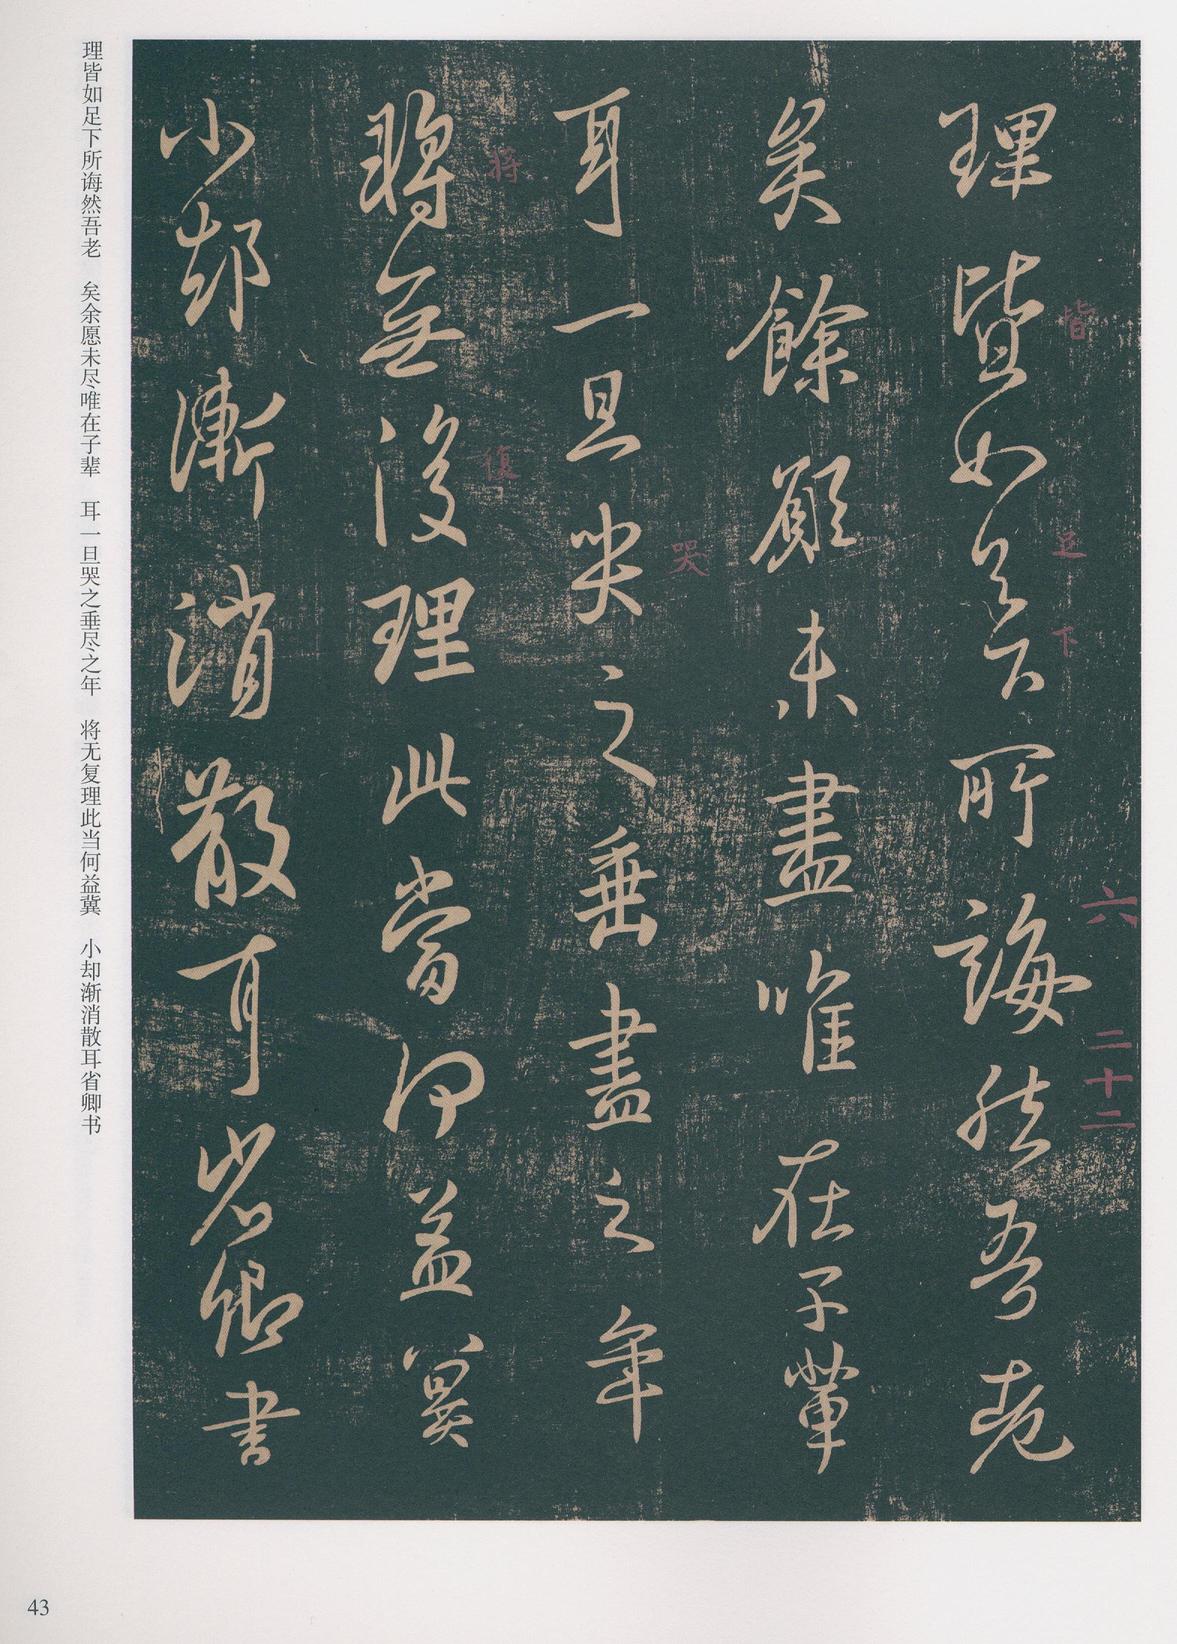 理皆如足下所誨然吾老
皆
足
下
六
二十二
矣餘願未盡唯在子輩
耳一旦哭之垂盡之年
哭
將無復理此當何益冀
将
復
小却漸消散耳省卿書
理皆如足下所诲然吾老 矣余愿未尽唯在子辈 耳一旦哭之垂尽之年 将无复理此当何益冀 小却渐消散耳省卿书
43